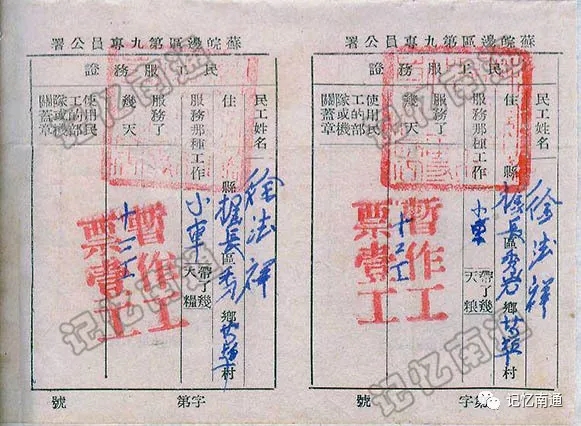 蘇皖邊區第九專員公署
民工服務證
民工姓名 徐法祥
住 縣掘長區 鄉 村
服務那種工作 小車 帶了幾天糧
服務了幾天 十二工
使用民工的部隊或機關蓋章
暫作工票壹工
字第 號
蘇皖邊區第九專員公署
民工服務證
民工姓名 徐法祥
住 縣掘長區 鄉 村
服務那種工作 小車 帶了幾天糧
服務了幾天 十二工
使用民工的部隊或機關蓋章
暫作工票壹工
字第 號
记忆南通
记忆南通
记忆南通
记忆南通
记忆南通